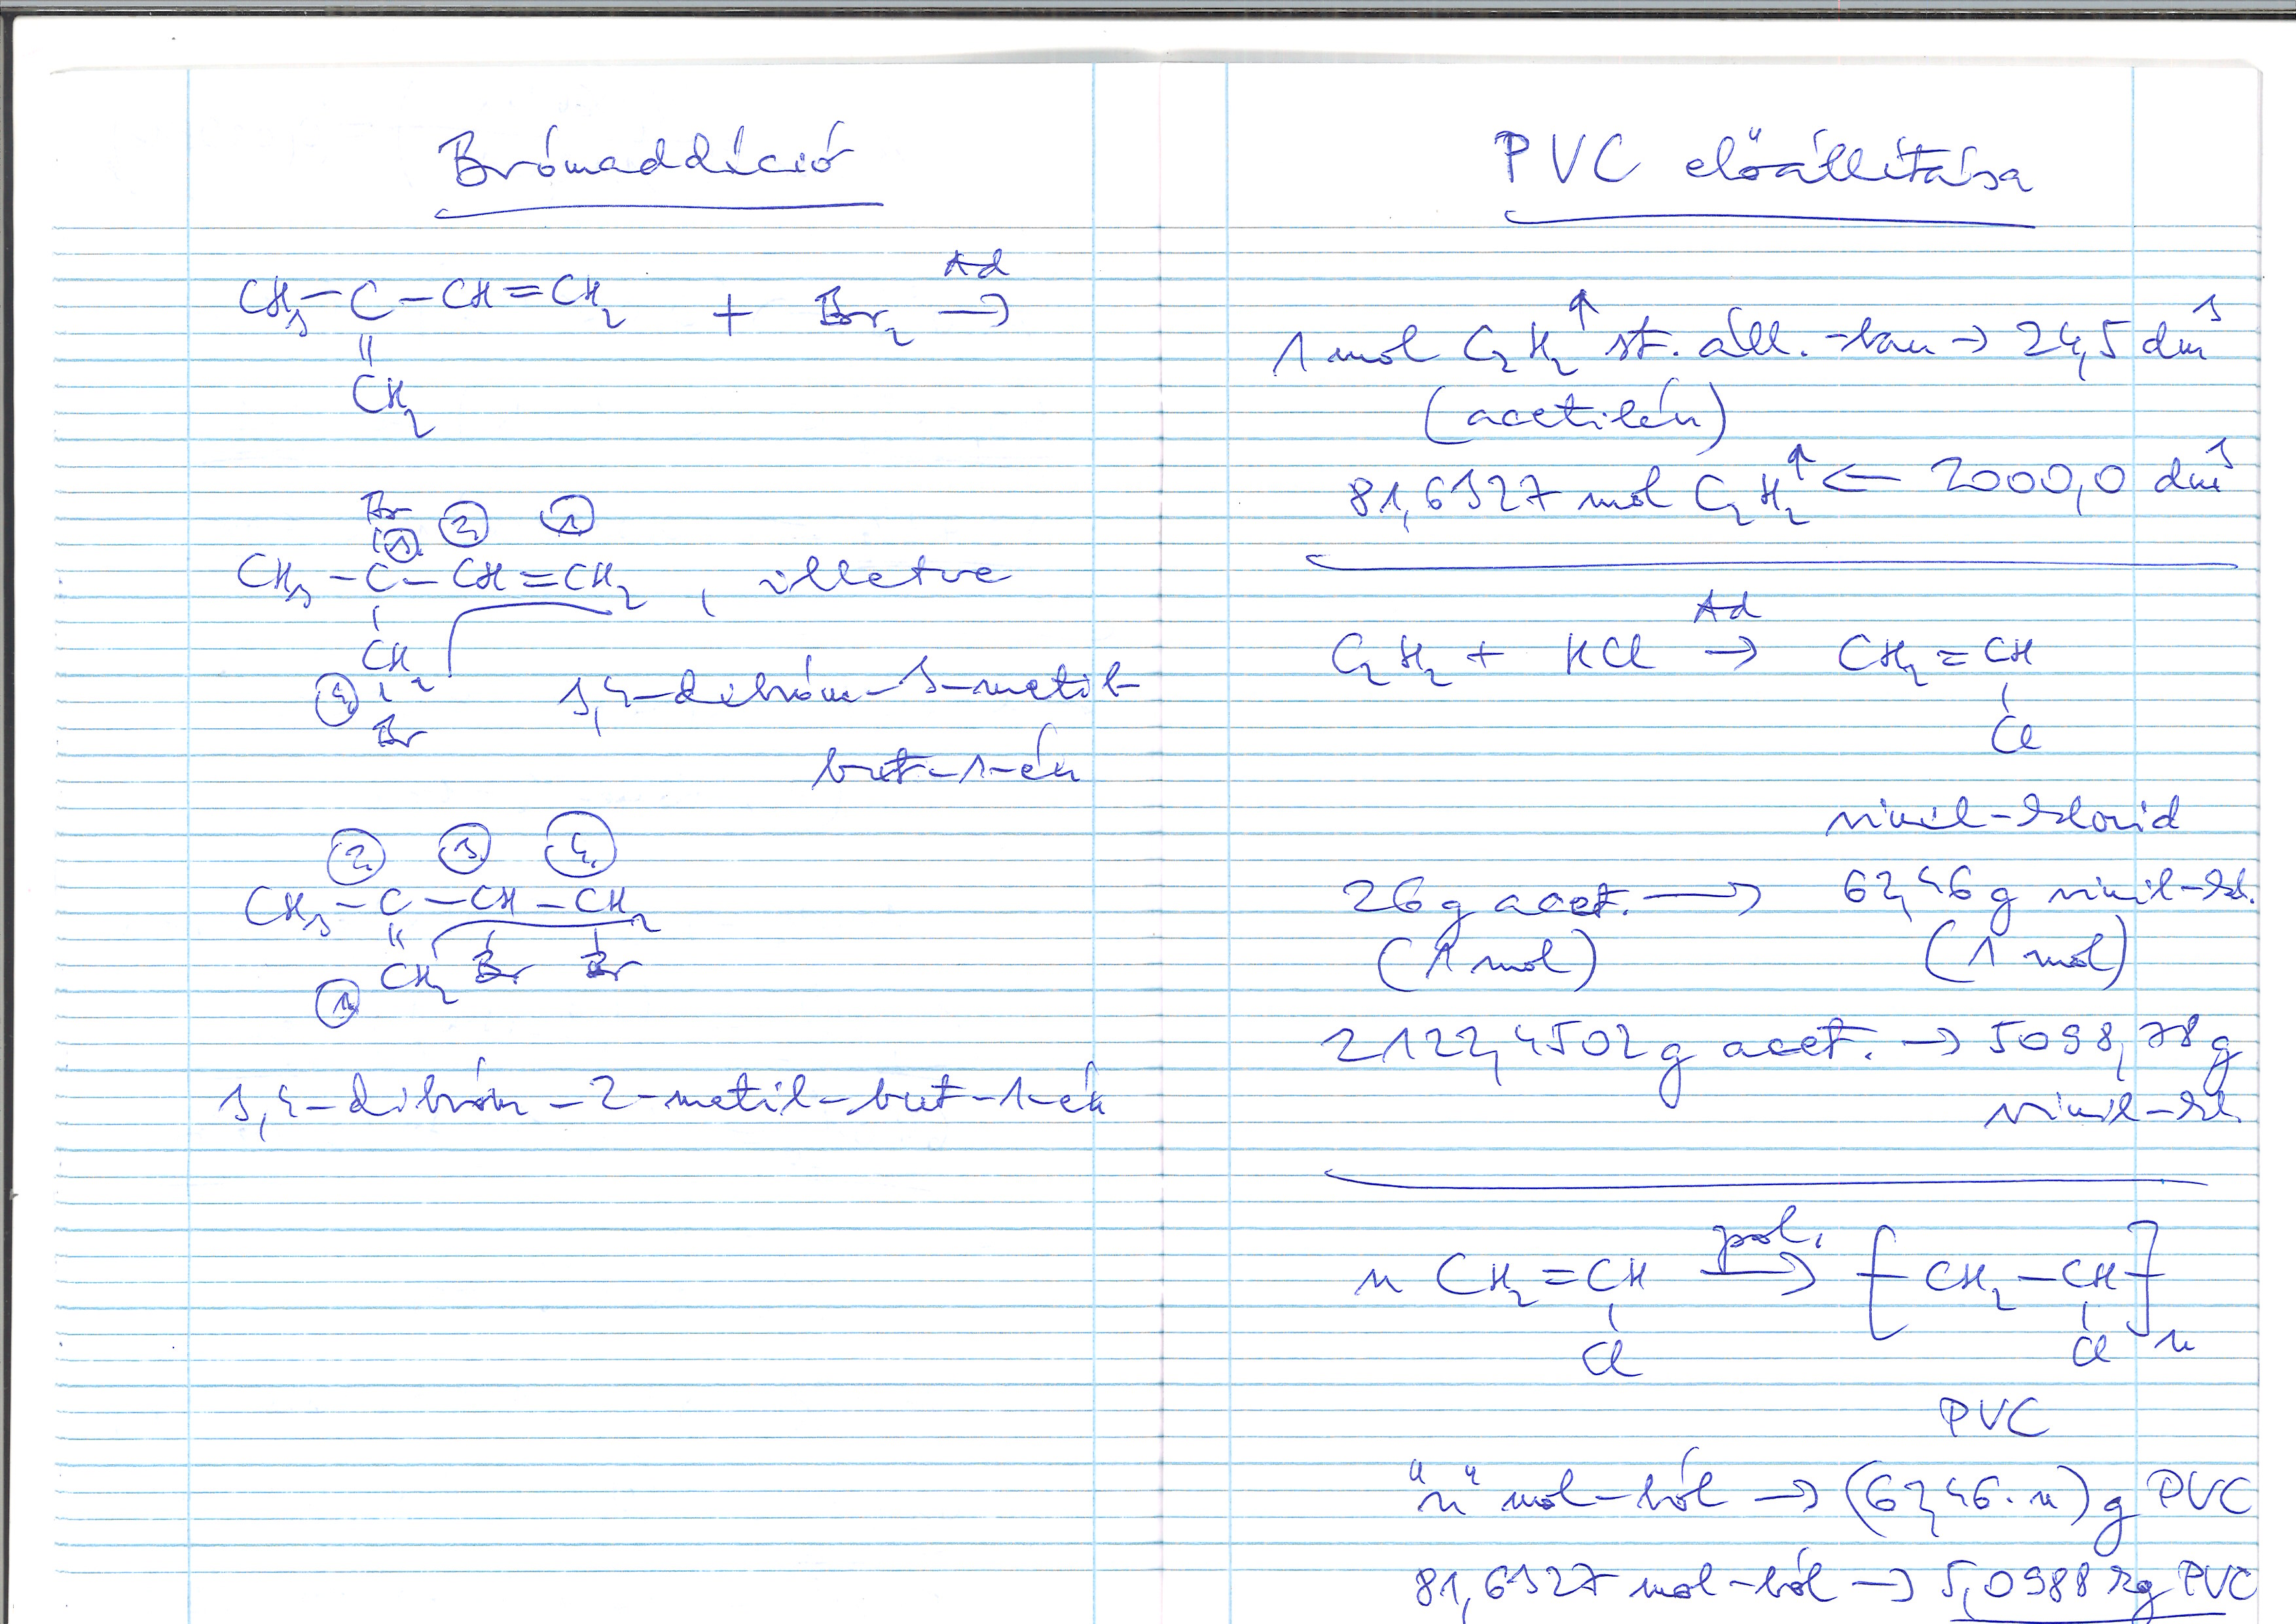 Brómaddíció
CH₃–C–CH=CH₂ + Br₂ →
Ad
||
CH₂
Br
| 3. 2. 1.
CH₃–C–CH=CH₂, illetve
|
CH₂
4. | 3,4-dibróm-3-metil-
Br
but-1-én
2. 3. 4.
CH₃–C–CH–CH₂
|| | |
CH₂ Br Br
1.
3,4-dibróm-2-metil-but-1-én
PVC előállítása
1 mol C₂H₂↑ st. áll.-ban → 24,5 dm³
(acetilén)
81,6327 mol C₂H₂↑ ← 2000,0 dm³
Ad
C₂H₂ + HCl → CH₂=CH
|
Cl
vinil-klorid
26 g acet. → 62,46 g vinil-kl.
(1 mol) (1 mol)
2122,4502 g acet. → 5098,78 g
vinil-kl.
pol.
n CH₂=CH → [–CH₂–CH–]n
| |
Cl Cl
PVC
"n" mol-ból → (62,46·n) g PVC
81,6327 mol-ból → 5,0988 kg PVC